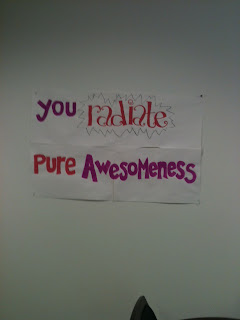 you radiate
PURE AWESOMENESS